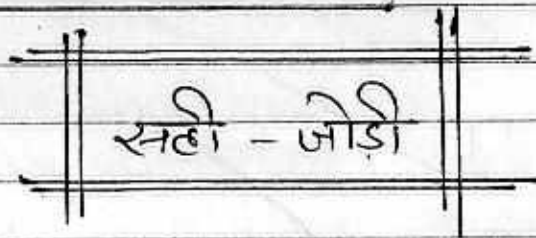 सही - जोड़ी